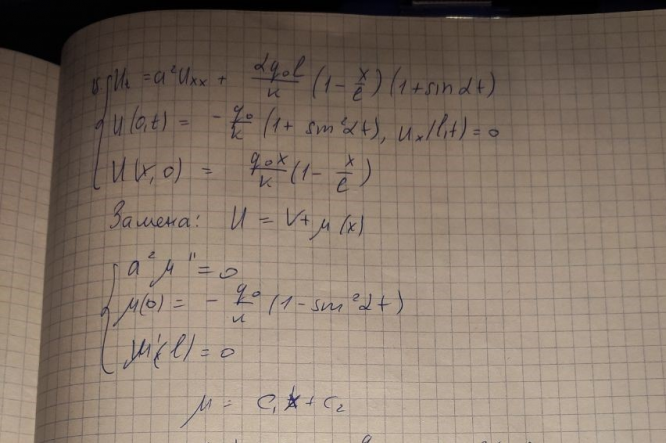 U_t = a²U_xx + αq₀l/к (1 - x/l)(1 + sin αt)
U(0,t) = -q₀/к (1 + sin²αt), U_x(l,t) = 0
U(x,0) = q₀x/к (1 - x/l)
Замена: U = V + μ(x)
a²μ'' = 0
μ(0) = -q₀/к (1 - sin²αt)
μ'(l) = 0
μ = C₁x + C₂